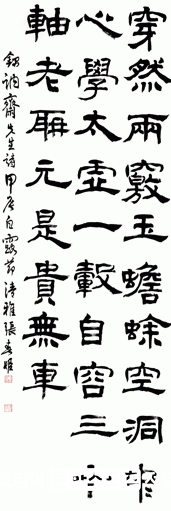 穿然兩竅玉蟾蜍空洞
心學太虛一轂自容三
軸老聃元是貴無車
訥齋先生詩 甲辰白露節 清雅張春姬